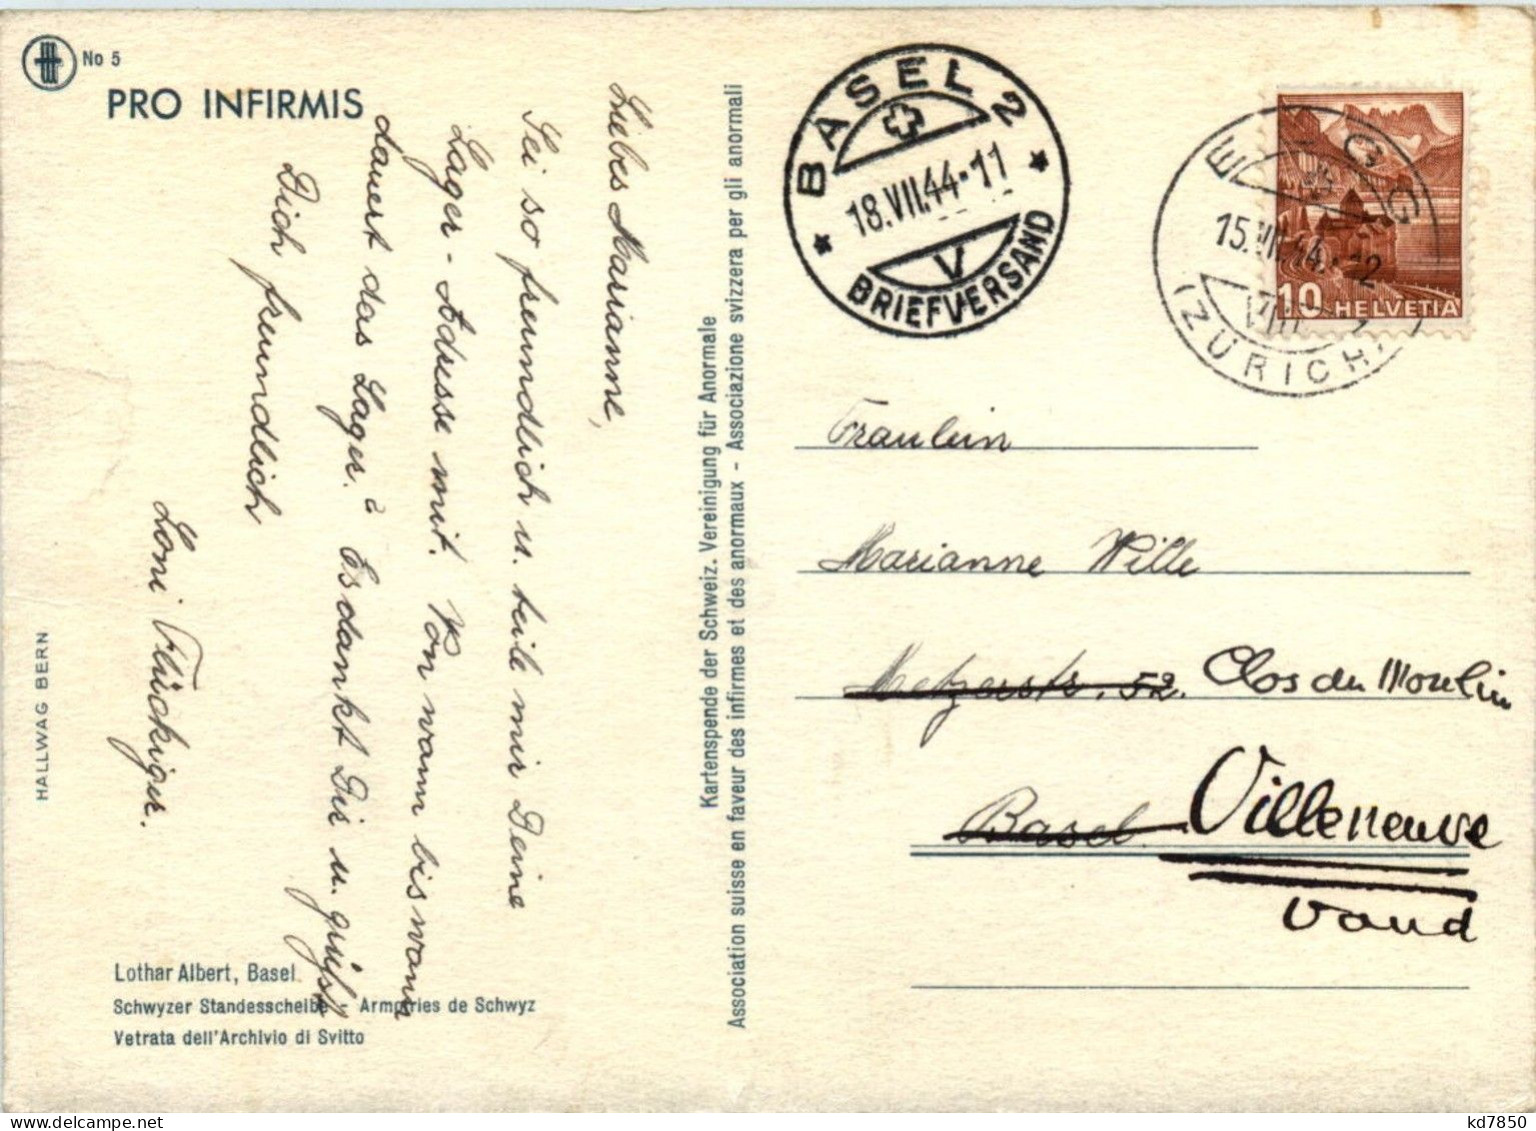 No 5
PRO INFIRMIS
Liebes Marianne,
Sei so freundlich u. teile mir Deine
Lager-Adresse mit. Von wann bis wann
dauert das Lager? Es dankt Dir u. grüsst
Dich freundlich
Loni Flückiger.
HALLWAG BERN
Lothar Albert, Basel
Schwyzer Standesscheibe - Armoiries de Schwyz
Vetrata dell'Archivio di Svitto
Kartenspende der Schweiz. Vereinigung für Anormale
Association suisse en faveur des infirmes et des anormaux - Associazione svizzera per gli anormali
BASEL 2
18.VII.44-11
V
BRIEFVERSAND
EGG
15.VII.44.-12
(ZÜRICH)
10 HELVETIA
Fräulein
Marianne Wille
Metzerstr. 52. Clos du Moulin
Basel. Villeneuve
Vaud
kd7850